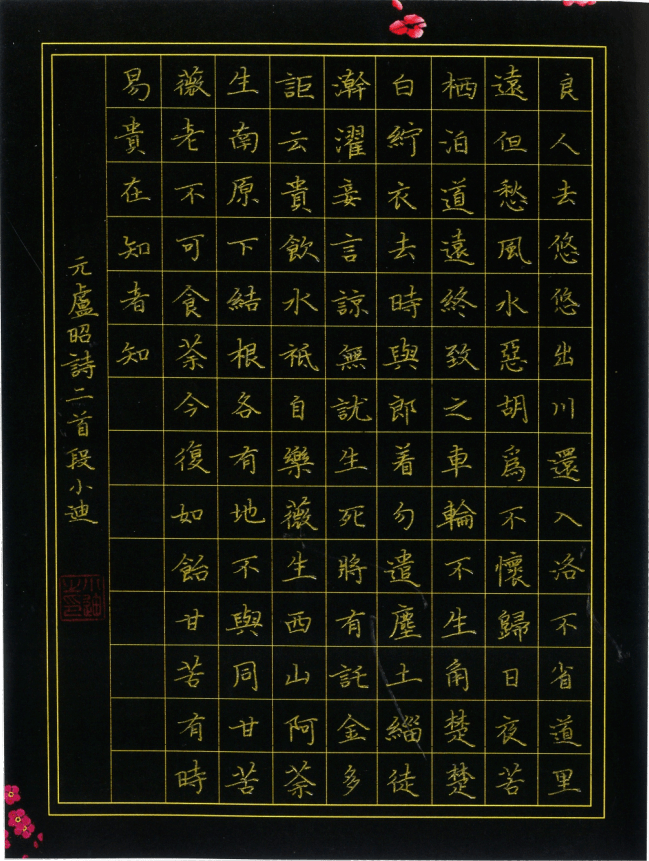 良人去悠悠出川還入洛不省道里
遠但愁風水惡胡爲不懷歸日夜苦
栖泊道遠終致之車輪不生角楚楚
白紵衣去時與郎着勿遣塵土緇徒
澣濯妾言諒無訧生死將有託金多
詎云貴飲水祗自樂薇生西山阿荼
生南原下結根各有地不與同甘苦
薇老不可食荼今復如飴甘苦有時
易貴在知者知
元盧昭詩二首段小迪